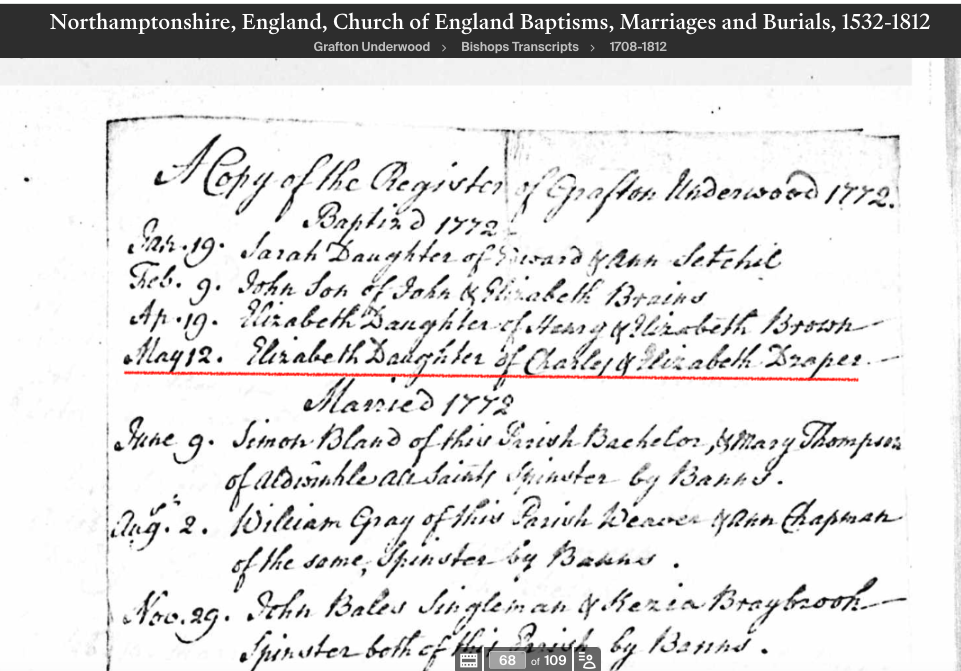 Northamptonshire, England, Church of England Baptisms, Marriages and Burials, 1532-1812
Grafton Underwood > Bishops Transcripts > 1708-1812
A Copy of the Register of Grafton Underwood 1772.
Baptiz'd 1772
Jan. 19. Sarah Daughter of Edward & Ann Setchil
Feb. 9. John Son of John & Elizabeth Brains
Ap. 19. Elizabeth Daughter of Henry & Elizabeth Brown
May 12. Elizabeth Daughter of Charles & Elizabeth Draper.
Married 1772
June 9. Simon Bland of this Parish Bachelor, & Mary Thompson
of Aldwinkle All Saints Spinster by Banns.
Aug. 2. William Gray of this Parish Weaver & Ann Chapman
of the same, Spinster by Banns.
Nov. 29. John Bales Singleman & Kezia Braybrook
Spinster both of this Parish by Banns.
68 of 109